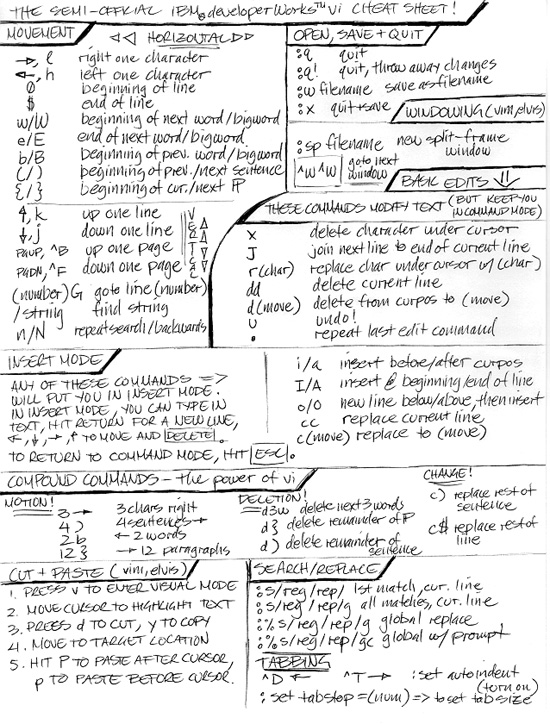 THE SEMI-OFFICIAL IBM developerWorks™ vi CHEAT SHEET!
MOVEMENT
◁◁ HORIZONTAL ▷▷
→, l right one character
←, h left one character
0 beginning of line
$ end of line
w/W beginning of next word/bigword
e/E end of next word/bigword
b/B beginning of prev. word/bigword
(/) beginning of prev./next sentence
{/} beginning of cur./next ¶
↑, k up one line
↓, j down one line
PGUP, ^B up one page
PGDN, ^F down one page
VERTICAL
(number)G goto line (number)
/string find string
n/N repeat search/backwards
OPEN, SAVE + QUIT
:q quit
:q! quit, throw away changes
:w filename save as filename
:x quit + save
WINDOWING (vim, elvis)
:sp filename new split-frame window
^W^W goto next window
BASIC EDITS
THESE COMMANDS MODIFY TEXT (BUT KEEP YOU IN COMMAND MODE)
x delete character under cursor
J join next line to end of current line
r(char) replace char under cursor w/(char)
dd delete current line
d(move) delete from curpos to (move)
u undo!
. repeat last edit command
INSERT MODE
ANY OF THESE COMMANDS =>
WILL PUT YOU IN INSERT MODE.
IN INSERT MODE, YOU CAN TYPE IN
TEXT, HIT RETURN FOR A NEW LINE,
←, ↓, →, ↑ TO MOVE AND DELETE.
TO RETURN TO COMMAND MODE, HIT ESC.
i/a insert before/after curpos
I/A insert @ beginning/end of line
o/O new line below/above, then insert
cc replace current line
c(move) replace to (move)
COMPOUND COMMANDS - the power of vi
MOTION!
3→ 3 chars right
4) 4 sentences →
2b ← 2 words
12} → 12 paragraphs
DELETION!
d3w delete next 3 words
d} delete remainder of ¶
d) delete remainder of sentence
CHANGE!
c) replace rest of sentence
c$ replace rest of line
CUT + PASTE (vim, elvis)
1. PRESS v TO ENTER VISUAL MODE
2. MOVE CURSOR TO HIGHLIGHT TEXT
3. PRESS d TO CUT, y TO COPY
4. MOVE TO TARGET LOCATION
5. HIT P TO PASTE AFTER CURSOR,
p TO PASTE BEFORE CURSOR.
SEARCH/REPLACE
:s/reg/rep/ 1st match, cur. line
:s/reg/rep/g all matches, cur. line
:%s/reg/rep/g global replace
:%s/reg/rep/gc global w/ prompt
TABBING
^D ← ^T → :set autoindent (turn on)
:set tabstop=(num) => to set tab size